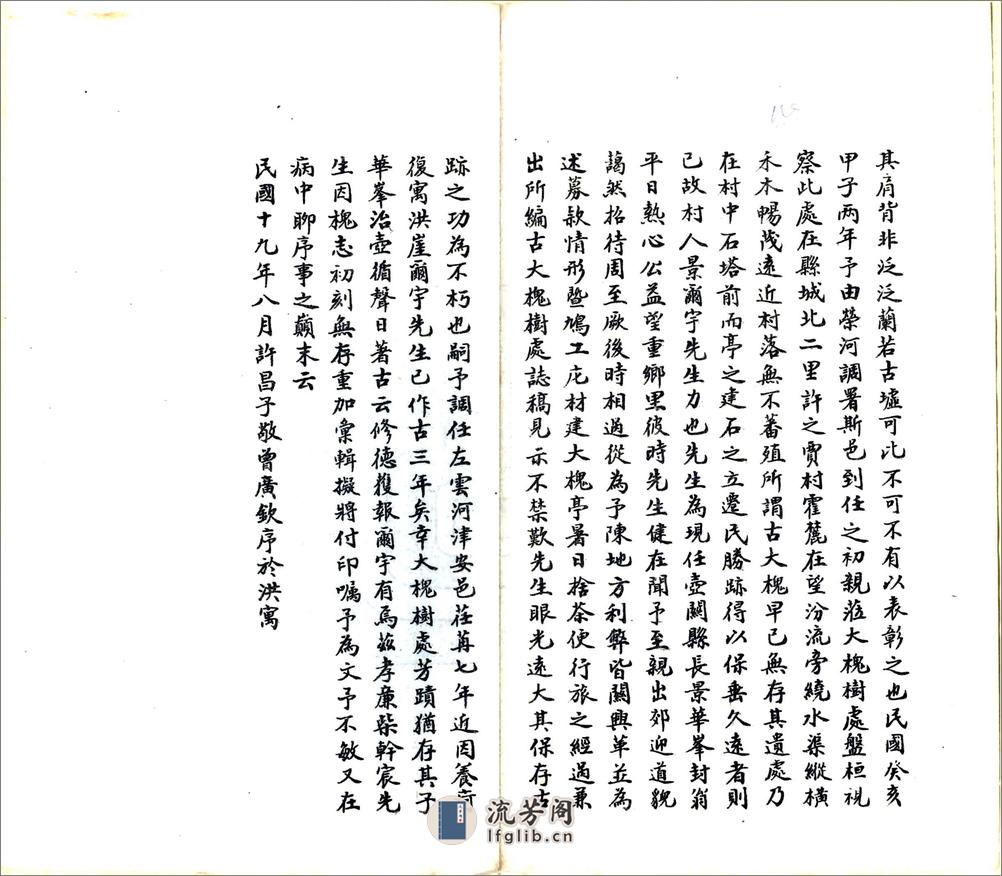 其肩背非泛泛蘭若古墟可比不可不有以表彰之也民國癸亥
甲子兩年予由榮河調署斯邑到任之初親蒞大槐樹處盤桓視
察此處在縣城北二里許之賈村霍麓在望汾流旁繞水渠縱橫
禾木暢茂遠近村落無不蕃殖所謂古大槐早已無存其遺處乃
在村中石塔前而亭之建石之立遷民勝跡得以保垂久遠者則
已故村人景爾宇先生力也先生為現任壺關縣長景華峯封翁
平日熱心公益望重鄉里彼時先生健在聞予至親出郊迎道貌
藹然招待周至厥後時相過從為予陳地方利弊皆關興革並為
述募款情形暨鳩工庀材建大槐亭暑日捨茶便行旅之經過兼
出所編古大槐樹處誌稿見示不禁歎先生眼光遠大其保存古
跡之功為不朽也嗣予調任左雲河津安邑荏苒七年近因養疴
復寓洪崖爾宇先生已作古三年矣幸大槐樹處芳蹟猶存其子
華峯治壺循聲日著古云修德獲報爾宇有焉茲孝廉柴幹宸先
生因槐志初刻無存重加彙輯擬將付印囑予為文予不敏又在
病中聊序事之巔末云
民國十九年八月許昌子敬曾廣欽序於洪寓
流芳阁
lfglib.cn